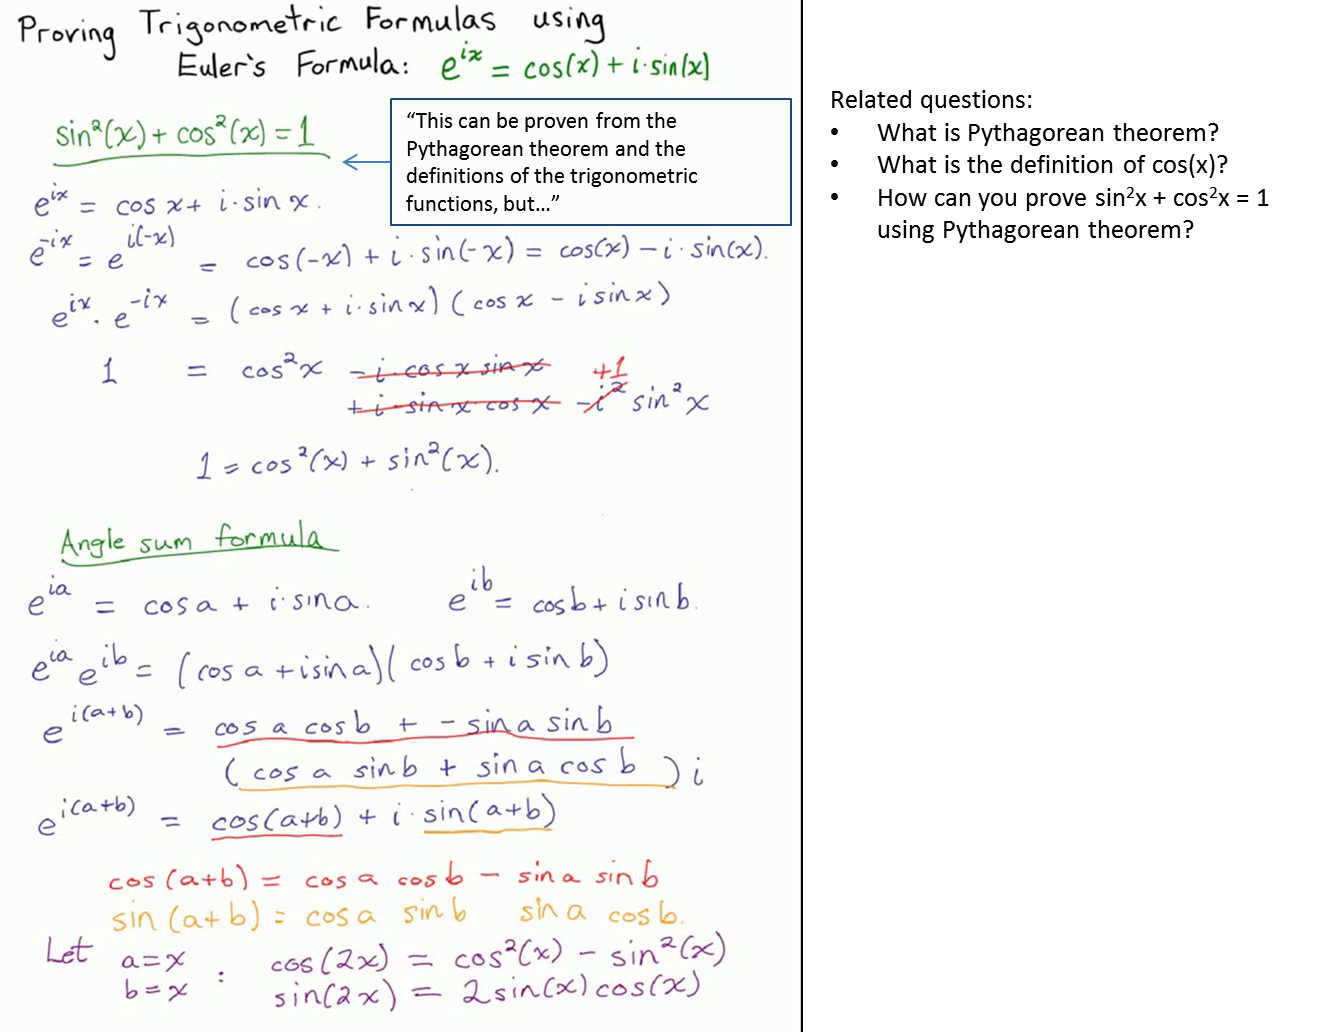 Proving Trigonometric Formulas using
Euler's Formula: e^{ix} = cos(x) + i·sin(x)
sin²(x) + cos²(x) = 1
“This can be proven from the
Pythagorean theorem and the
definitions of the trigonometric
functions, but…”
e^{ix} = cos x + i·sin x.
e^{-ix} = e^{i(-x)} = cos(-x) + i·sin(-x) = cos(x) - i·sin(x).
e^{ix}·e^{-ix} = (cos x + i·sin x)(cos x - i sin x)
1 = cos²x - i·cos x sin x +1
+ i·sin x cos x - i² sin²x
1 = cos²(x) + sin²(x).
Angle sum formula
e^{ia} = cos a + i·sin a. e^{ib} = cos b + i sin b.
e^{ia} e^{ib} = (cos a + i sin a)(cos b + i sin b)
e^{i(a+b)} = cos a cos b + - sin a sin b
(cos a sin b + sin a cos b) i
e^{i(a+b)} = cos(a+b) + i·sin(a+b)
cos(a+b) = cos a cos b - sin a sin b
sin(a+b) = cos a sin b sin a cos b.
Let a=x : cos(2x) = cos²(x) - sin²(x)
b=x sin(2x) = 2 sin(x) cos(x)
Related questions:
• What is Pythagorean theorem?
• What is the definition of cos(x)?
• How can you prove sin²x + cos²x = 1
using Pythagorean theorem?